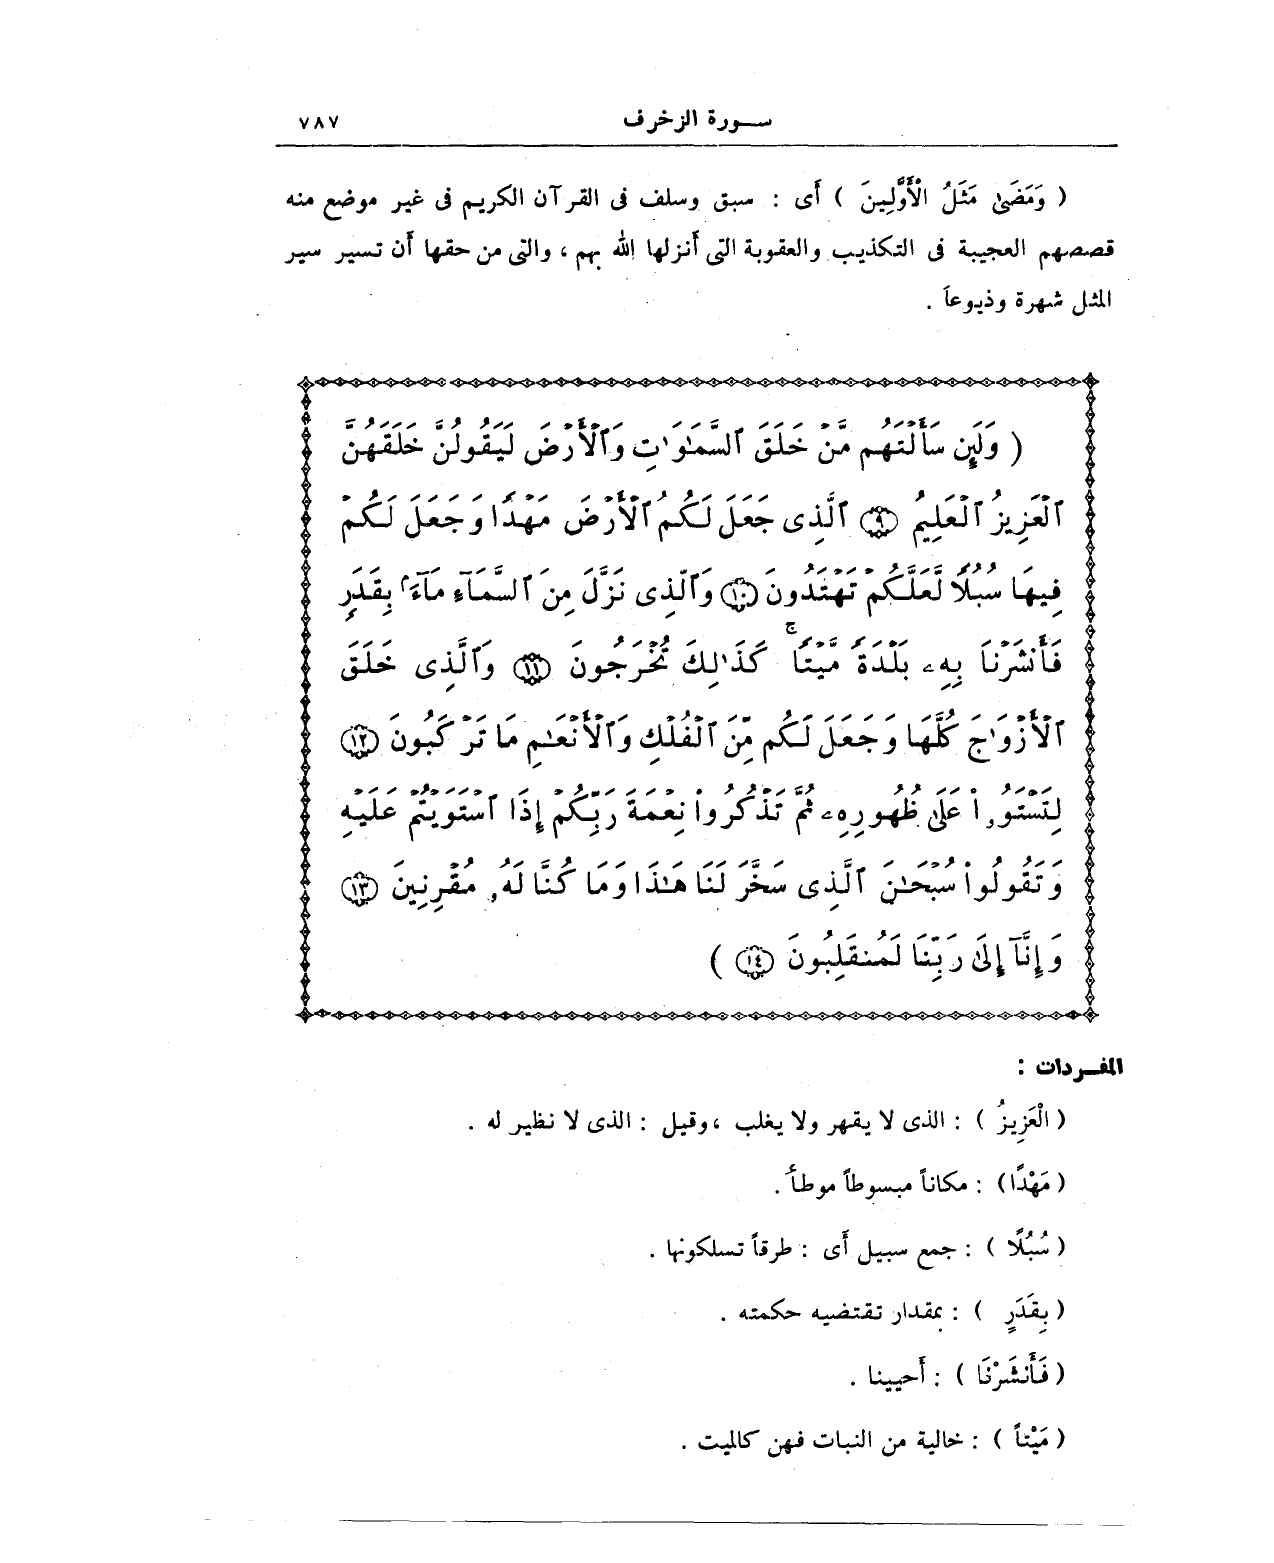 سورة الزخرف ٧٨٧
( وَمَضَىٰ مَثَلُ الْأَوَّلِينَ ) أَى : سبق وسلف فى القرآن الكريم فى غير موضع منه
قصصهم العجيبة فى التكذيب والعقوبة التى أنزلها الله بهم ، والتى من حقها أن تسير سير
المثل شهرة وذيوعاً .
( وَلَئِن سَأَلْتَهُم مَّنْ خَلَقَ ٱلسَّمَٰوَٰتِ وَٱلْأَرْضَ لَيَقُولُنَّ خَلَقَهُنَّ
ٱلْعَزِيزُ ٱلْعَلِيمُ ٩ ٱلَّذِى جَعَلَ لَكُمُ ٱلْأَرْضَ مَهْدًا وَجَعَلَ لَكُمْ
فِيهَا سُبُلًا لَّعَلَّكُمْ تَهْتَدُونَ ١٠ وَٱلَّذِى نَزَّلَ مِنَ ٱلسَّمَآءِ مَآءًۢ بِقَدَرٍ
فَأَنشَرْنَا بِهِۦ بَلْدَةً مَّيْتًا ۚ كَذَٰلِكَ تُخْرَجُونَ ١١ وَٱلَّذِى خَلَقَ
ٱلْأَزْوَٰجَ كُلَّهَا وَجَعَلَ لَكُم مِّنَ ٱلْفُلْكِ وَٱلْأَنْعَٰمِ مَا تَرْكَبُونَ ١٢
لِتَسْتَوُۥا۟ عَلَىٰ ظُهُورِهِۦ ثُمَّ تَذْكُرُوا۟ نِعْمَةَ رَبِّكُمْ إِذَا ٱسْتَوَيْتُمْ عَلَيْهِ
وَتَقُولُوا۟ سُبْحَٰنَ ٱلَّذِى سَخَّرَ لَنَا هَٰذَا وَمَا كُنَّا لَهُۥ مُقْرِنِينَ ١٣
وَإِنَّآ إِلَىٰ رَبِّنَا لَمُنقَلِبُونَ ١٤ )
المفردات :
( الْعَزِيزُ ) : الذى لا يقهر ولا يغلب ، وقيل : الذى لا نظير له .
( مَهْدًا ) : مكاناً مبسوطاً موطأ .
( سُبُلًا ) : جمع سبيل أَى : طرقاً تسلكونها .
( بِقَدَرٍ ) : بمقدار تقتضيه حكمته .
( فَأَنشَرْنَا ) : أَحيينا .
( مَيْتاً ) : خالية من النبات فهن كالميت .